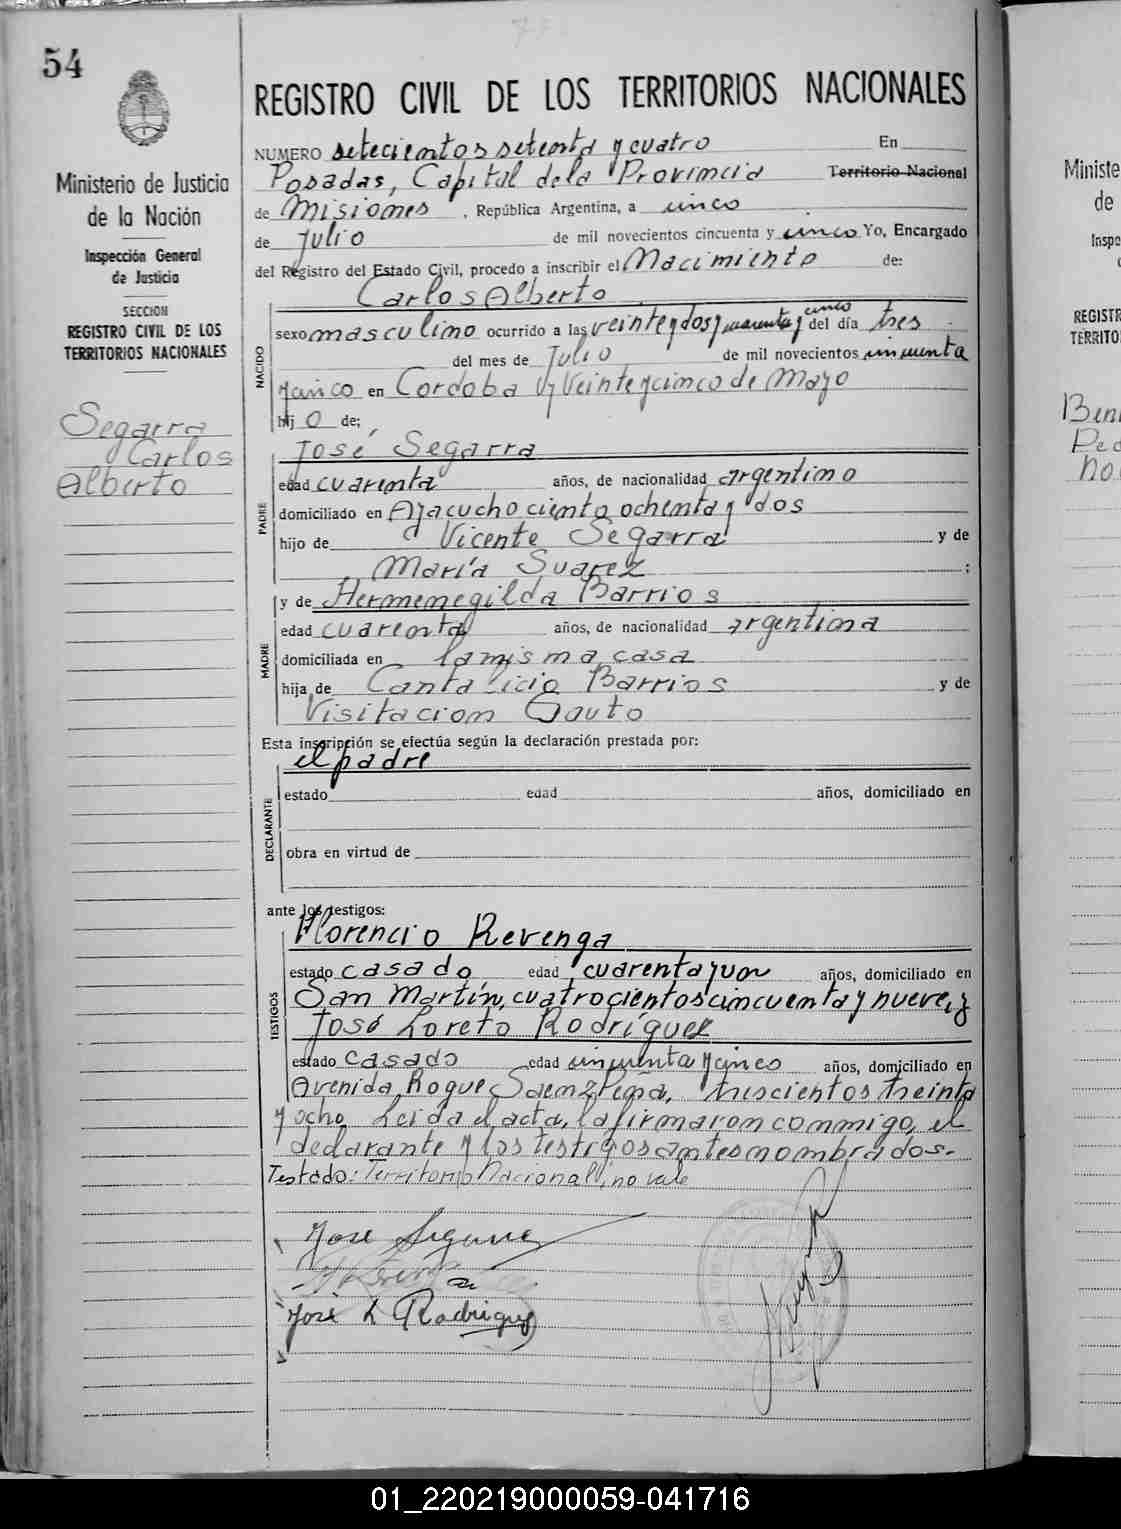 54
Ministerio de Justicia
de la Nación
Inspección General
de Justicia
SECCION
REGISTRO CIVIL DE LOS
TERRITORIOS NACIONALES
Segarra
Carlos
Alberto
REGISTRO CIVIL DE LOS TERRITORIOS NACIONALES
NUMERO setecientos setenta y cuatro En
Posadas, Capital de la Provincia Territorio Nacional
de Misiones, República Argentina, a cinco
de Julio de mil novecientos cincuenta y cinco Yo, Encargado
del Registro del Estado Civil, procedo a inscribir el Nacimiento de:
Carlos Alberto
NACIDO
sexo masculino ocurrido a las veinte y dos y cuarenta y cinco del día tres
del mes de Julio de mil novecientos cincuenta
y cinco en Cordoba y Veinte y cinco de Mayo
hijo de:
José Segarra
PADRE
edad cuarenta años, de nacionalidad argentino
domiciliado en Ayacucho ciento ochenta y dos
hijo de Vicente Segarra y de
María Suarez ;
y de Hermenegilda Barrios
MADRE
edad cuarenta años, de nacionalidad argentina
domiciliada en la misma casa
hija de Cantalicio Barrios y de
Visitacion Gauto
Esta inscripción se efectúa según la declaración prestada por:
el padre
DECLARANTE
estado edad años, domiciliado en
obra en virtud de
ante los testigos:
Florencio Revenga
TESTIGOS
estado casado edad cuarenta y un años, domiciliado en
San Martín, cuatrocientos cincuenta y nueve, y
José Loreto Rodríguez
estado casado edad cincuenta y cinco años, domiciliado en
Avenida Roque Saenz Peña, trescientos treinta
y ocho. Leida el acta, la firmaron conmigo, el
declarante y los testigos antes nombrados.-
Testado: Territorio Nacional, no vale
Jose Segarra
José L Rodriguez
Ministe
de
Inspe
REGISTR
TERRITO
01_220219000059-041716